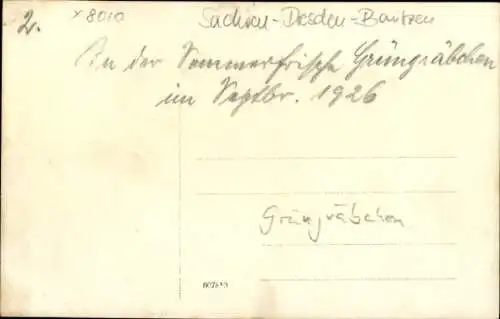 2. x 8010 Sachsen-Dresden-Bautzen
In der Sommerfrische Grüngräbchen
im Septbr. 1926
Grüngräbchen